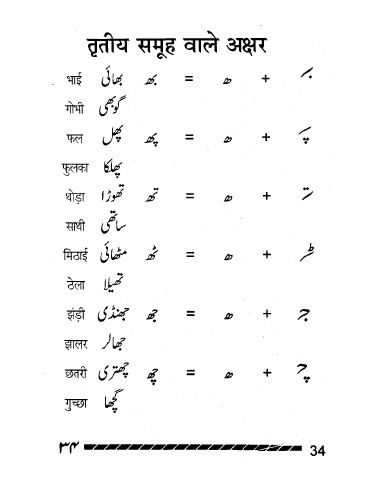 तृतीय समूह वाले अक्षर
भाई بھائی بھ = ھ + بـ
गोभी گوبھی
फल پھل پھ = ھ + پـ
फुलका پھلکا
थोड़ा تھوڑا تھ = ھ + تـ
साथी ساتھی
मिठाई مٹھائی ٹھ = ھ + ٹـ
ठेला تھیلا
झंडी جھنڈی جھ = ھ + جـ
झालर جھالر
छतरी چھتری چھ = ھ + چـ
गुच्छा گچھا
۳۴ 34